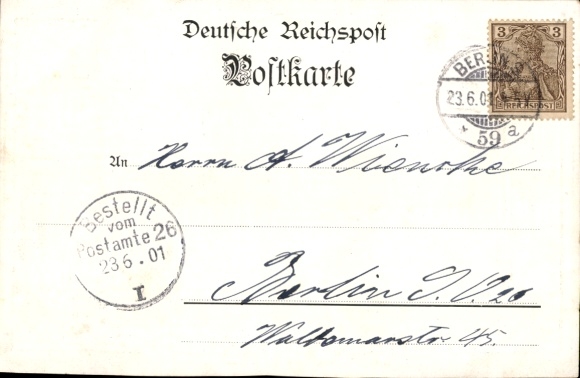 Deutsche Reichspost
Postkarte
3 3
REICHSPOST
BERLIN
23.6.01
* 59 a
An Herrn A. Wiencke
Bestellt
vom
Postamte 26
23.6.01
I
Berlin S.O. 26
Waldemarstr. 45.